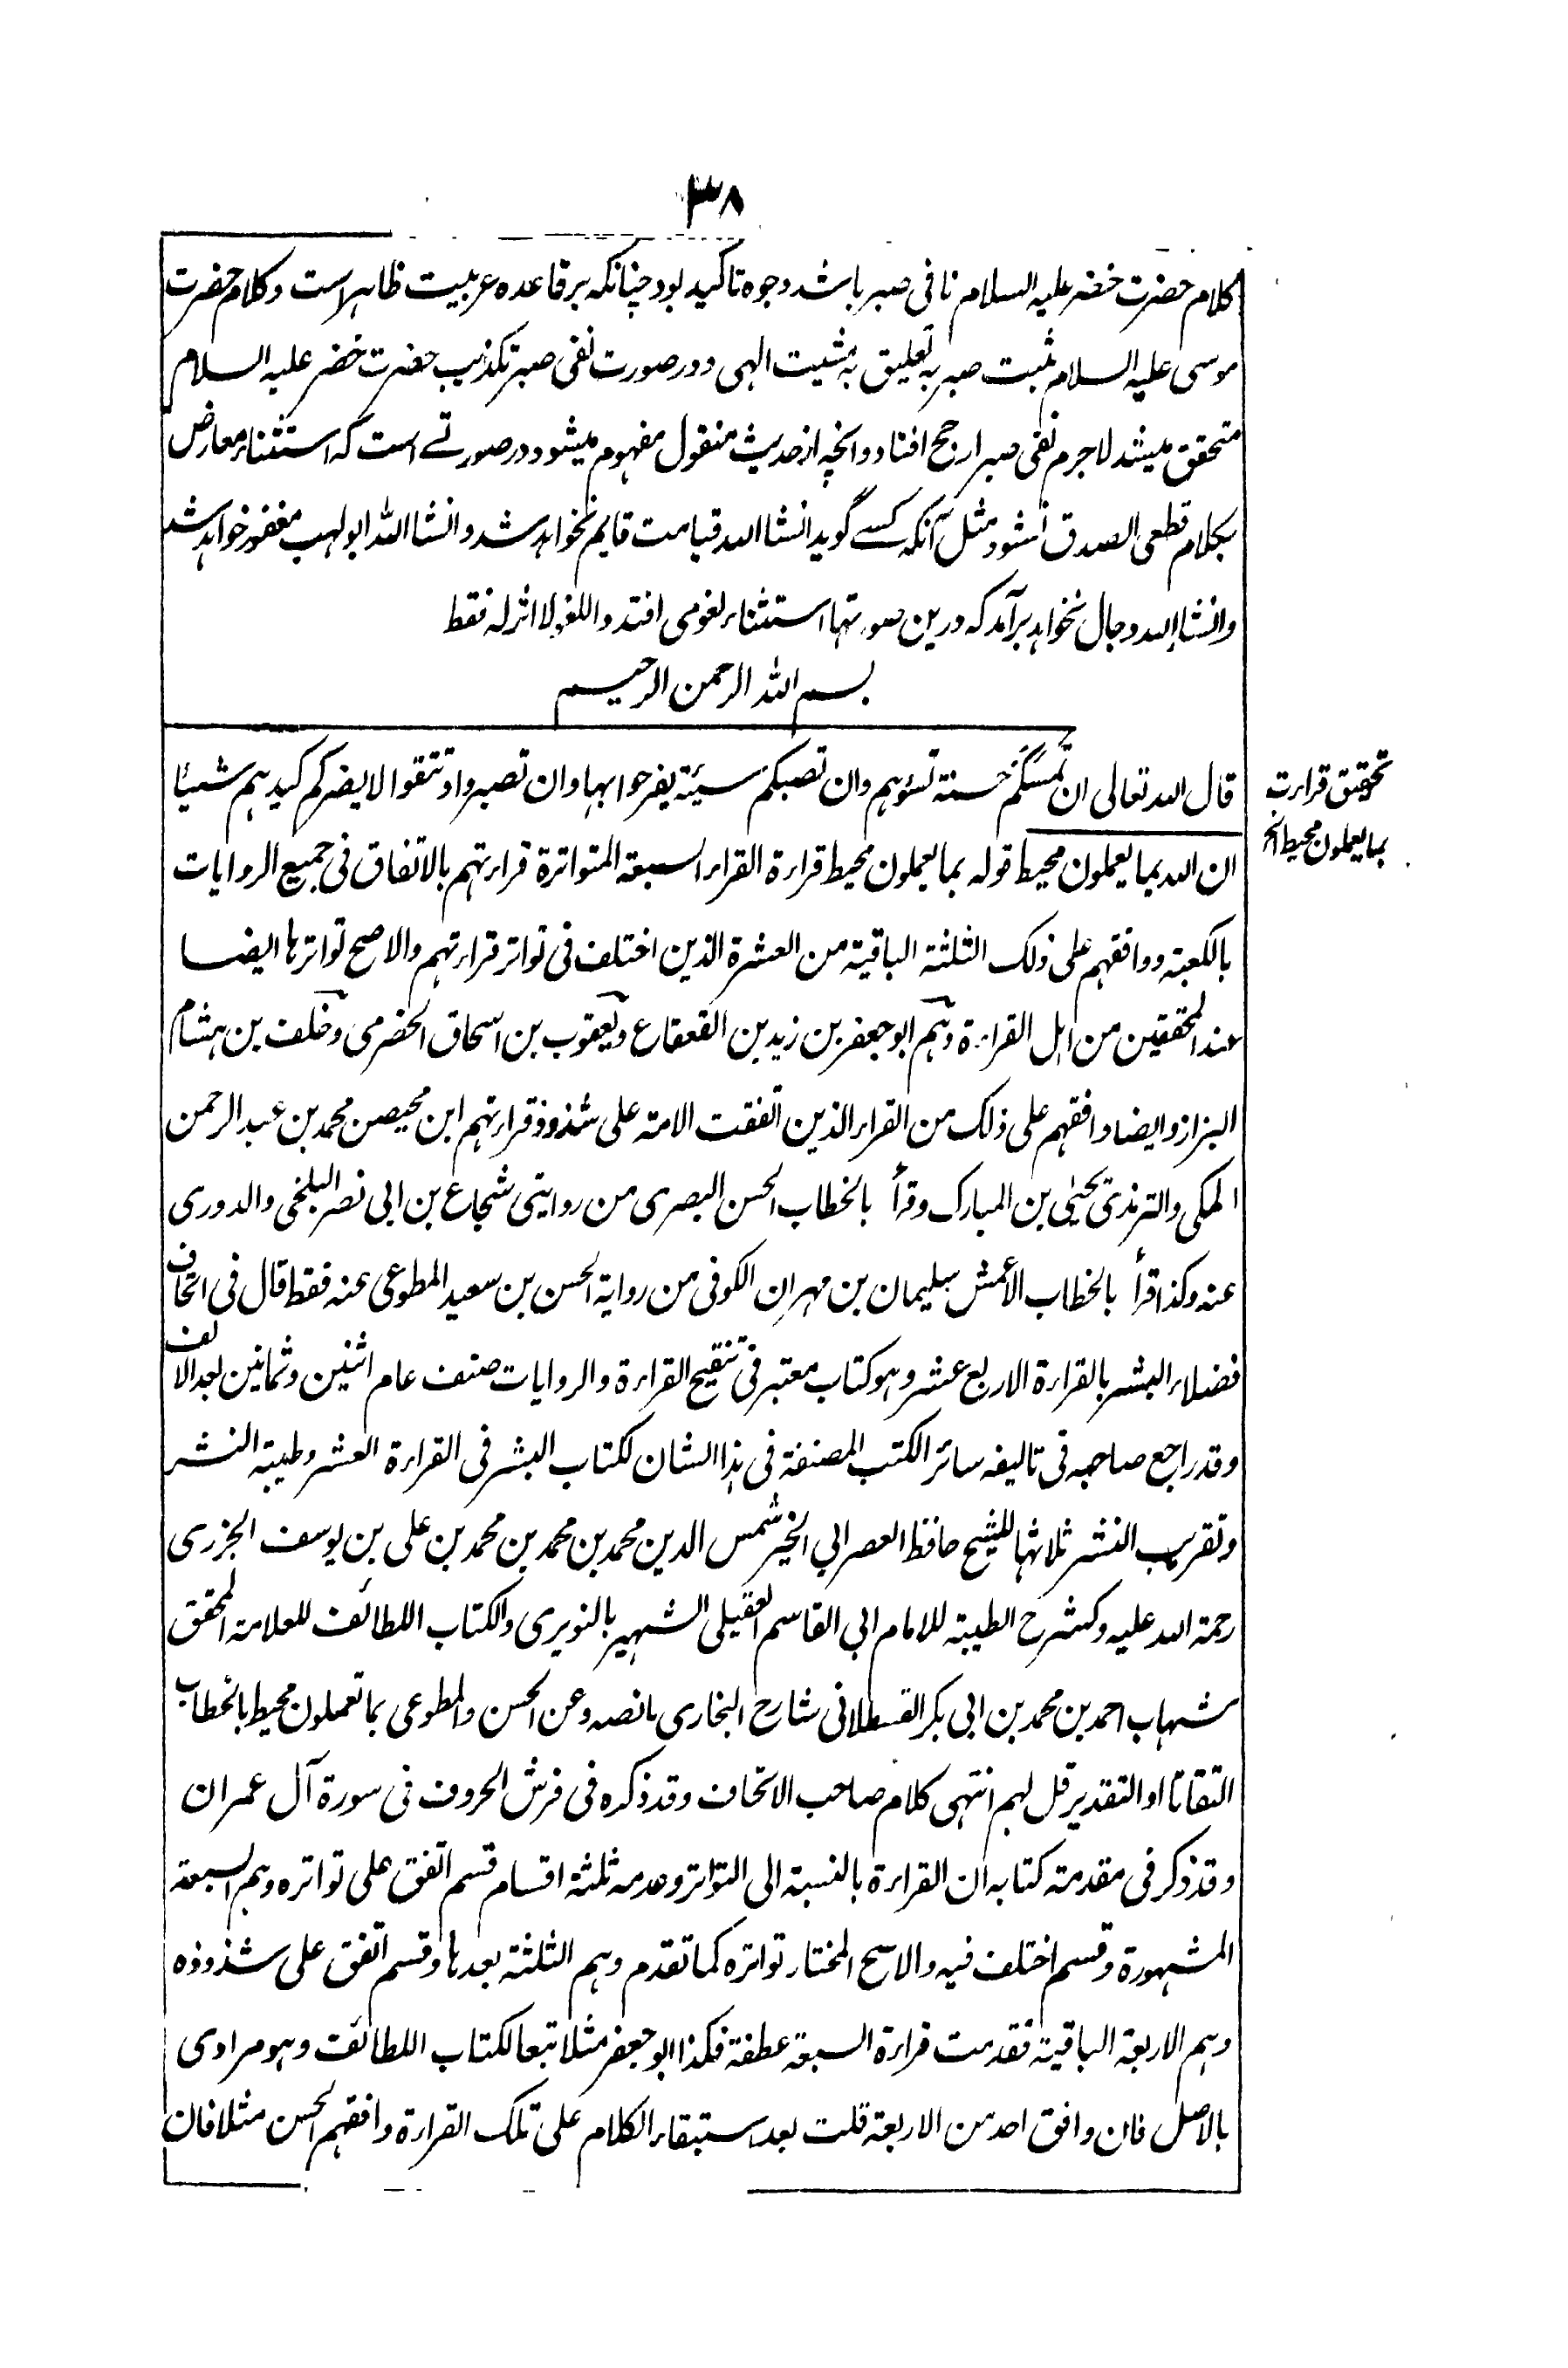 ۳۸
کلام حضرت خضر علیه السلام نافی صبر باشد وجوه تاکید بود چنانکه بر قاعده عربیت ظاهر است و کلام حضرت
موسی علیه السلام مثبت صبر به تعلیق به مشیت الهی و در صورت نفی صبر تکذیب حضرت خضر علیه السلام
متحقق میشد لاجرم نفی صبر ارجح افتاد و انچه از حدیث منقول مفهوم میشود در صورتے است که استثناء معارض
بکلام قطعی الصدق نشود مثل آنکه کسے گوید انشا الله قیامت قایم نخواهد شد و انشا الله ابولهب مغفور خواهد شد
و انشا الله دجال نخواهد برآمد که درین صورتها استثناء لغو می افتد و اللغو لا اثر له فقط
بسم الله الرحمن الرحیم
تحقیق قراءت
بما یعملون محیط الخ
قال الله تعالی ان تمسسکم حسنة تسؤهم وان تصبکم سیئة یفرحوا بها وان تصبروا وتتقوا لا یضرکم کیدهم شیئا
ان الله بما یعملون محیط قوله بما یعملون محیط قراءة القراء السبعة المتواترة قراءتهم بالاتفاق فی جمیع الروایات
بالکعبته ووافقهم علی ذلک الثلثة الباقیة من العشرة الذین اختلف فی تواتر قراءتهم والاصح تواترها ایضا
عند المحققین من اهل القراءة وهم ابو جعفر بن زید بن القعقاع ویعقوب بن اسحاق الحضرمی وخلف بن هشام
البزاز وایضا وافقهم علی ذلک من القراء الذین اتفقت الامة علی شذوذ قراءتهم ابن محیصن محمد بن عبد الرحمن
المکی والترمذی یحیی بن المبارک وقرأ بالخطاب الحسن البصری من روایتی شجاع بن ابی نصر البلخی والدوری
عنه وکذا قرأ بالخطاب الأعمش سلیمان بن مهران الکوفی من روایة الحسن بن سعید المطوعی عنه فقط قال فی اتحاف
فضلاء البشر بالقراءة الاربع عشر وهو کتاب معتبر فی تنقیح القراءة والروایات صنف عام اثنین وثمانین بعد الالف
وقد راجع صاحبه فی تالیفه سائر الکتب المصنفة فی هذا الشان لکتاب البشر فی القراءة العشر وطیبة النشر
وتقریب النشر ثلاثها للشیخ حافظ العصر ابی الخیر شمس الدین محمد بن محمد بن محمد بن علی بن یوسف الجزری
رحمة الله علیه وکشرح الطیبة للامام ابی القاسم العقیلی الشهیر بالنویری والکتاب اللطائف للعلامة المحقق
شهاب احمد بن محمد بن ابی بکر القسطلانی شارح البخاری ما نصه وعن الحسن والمطوعی بما تعملون محیط بالخطاب
التفاتا او التقدیر قل لهم انتهی کلام صاحب الاتحاف وقد ذکره فی فرش الحروف فی سورة آل عمران
وقد ذکر فی مقدمة کتابه ان القراءة بالنسبة الی التواتر وعدمه ثلثة اقسام قسم اتفق علی تواتره وهم السبعة
المشهورة وقسم اختلف فیه والاصح المختار تواتره کما تقدم وهم الثلثة بعدها وقسم اتفق علی شذوذه
وهم الاربعة الباقیة فقدمت قراءة السبعة عطفة فکذا ابو جعفر مثلا تبعا لکتاب اللطائف وهو مرادی
بالاصل فان وافق احد من الاربعة قلت بعد استیفاء الکلام علی تلک القراءة وافقهم الحسن مثلا فان